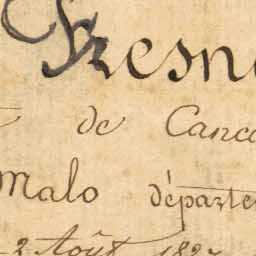 Fresn
de Canca
Malo départe
2 Août 182